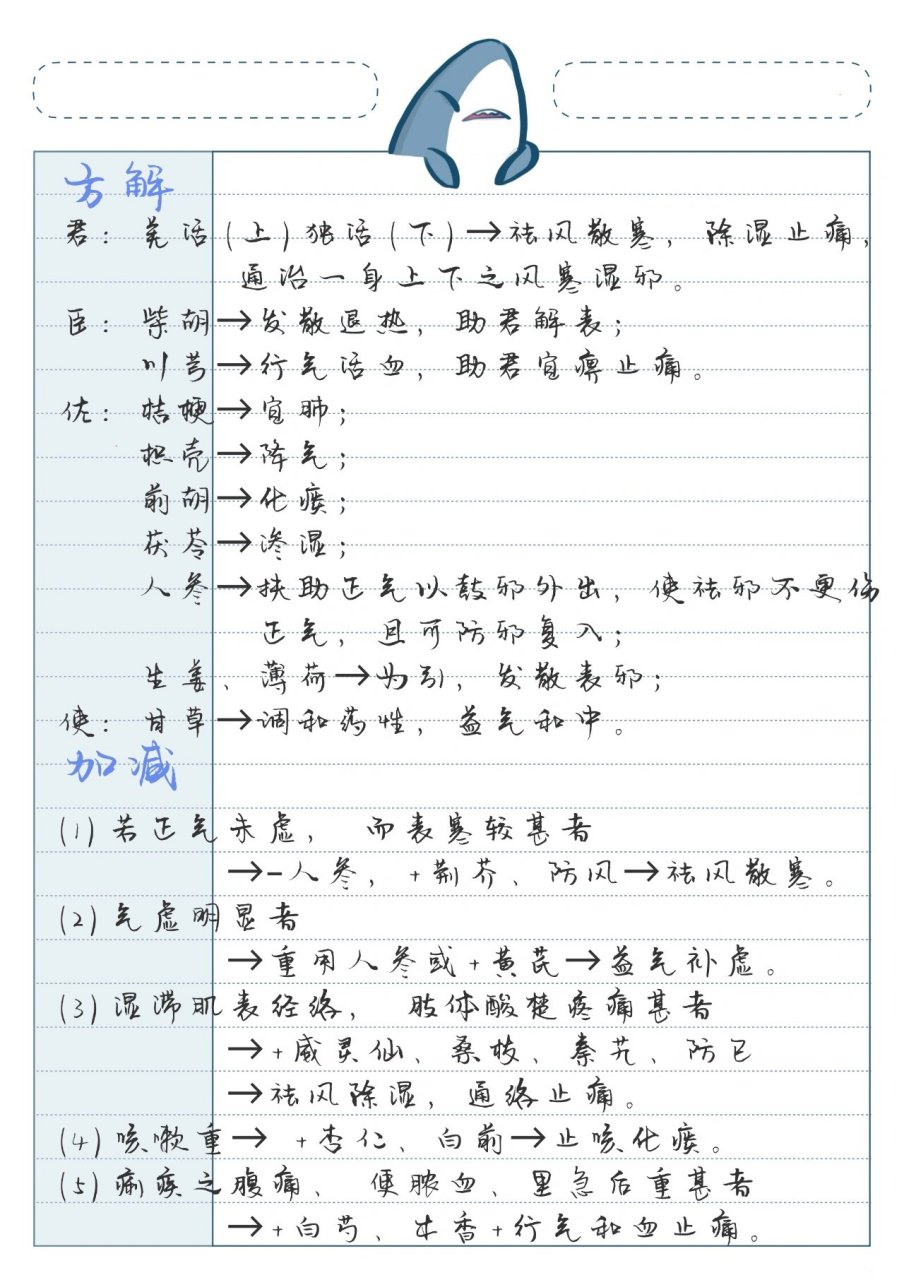 方解
君：羌活(上)独活(下)→祛风散寒，除湿止痛，
通治一身上下之风寒湿邪。
臣：柴胡→发散退热，助君解表；
川芎→行气活血，助君宣痹止痛。
佐：桔梗→宣肺；
枳壳→降气；
前胡→化痰；
茯苓→渗湿；
人参→扶助正气以鼓邪外出，使祛邪不更伤
正气，且可防邪复入；
生姜、薄荷→为引，发散表邪；
使：甘草→调和药性，益气和中。
加减
(1)若正气未虚，而表寒较甚者
→-人参，+荆芥、防风→祛风散寒。
(2)气虚明显者
→重用人参或+黄芪→益气补虚。
(3)湿滞肌表经络，肢体酸楚疼痛甚者
→+威灵仙、桑枝、秦艽、防己
→祛风除湿，通络止痛。
(4)咳嗽重→ +杏仁、白前→止咳化痰。
(5)痢疾之腹痛、便脓血、里急后重甚者
→+白芍、木香+行气和血止痛。